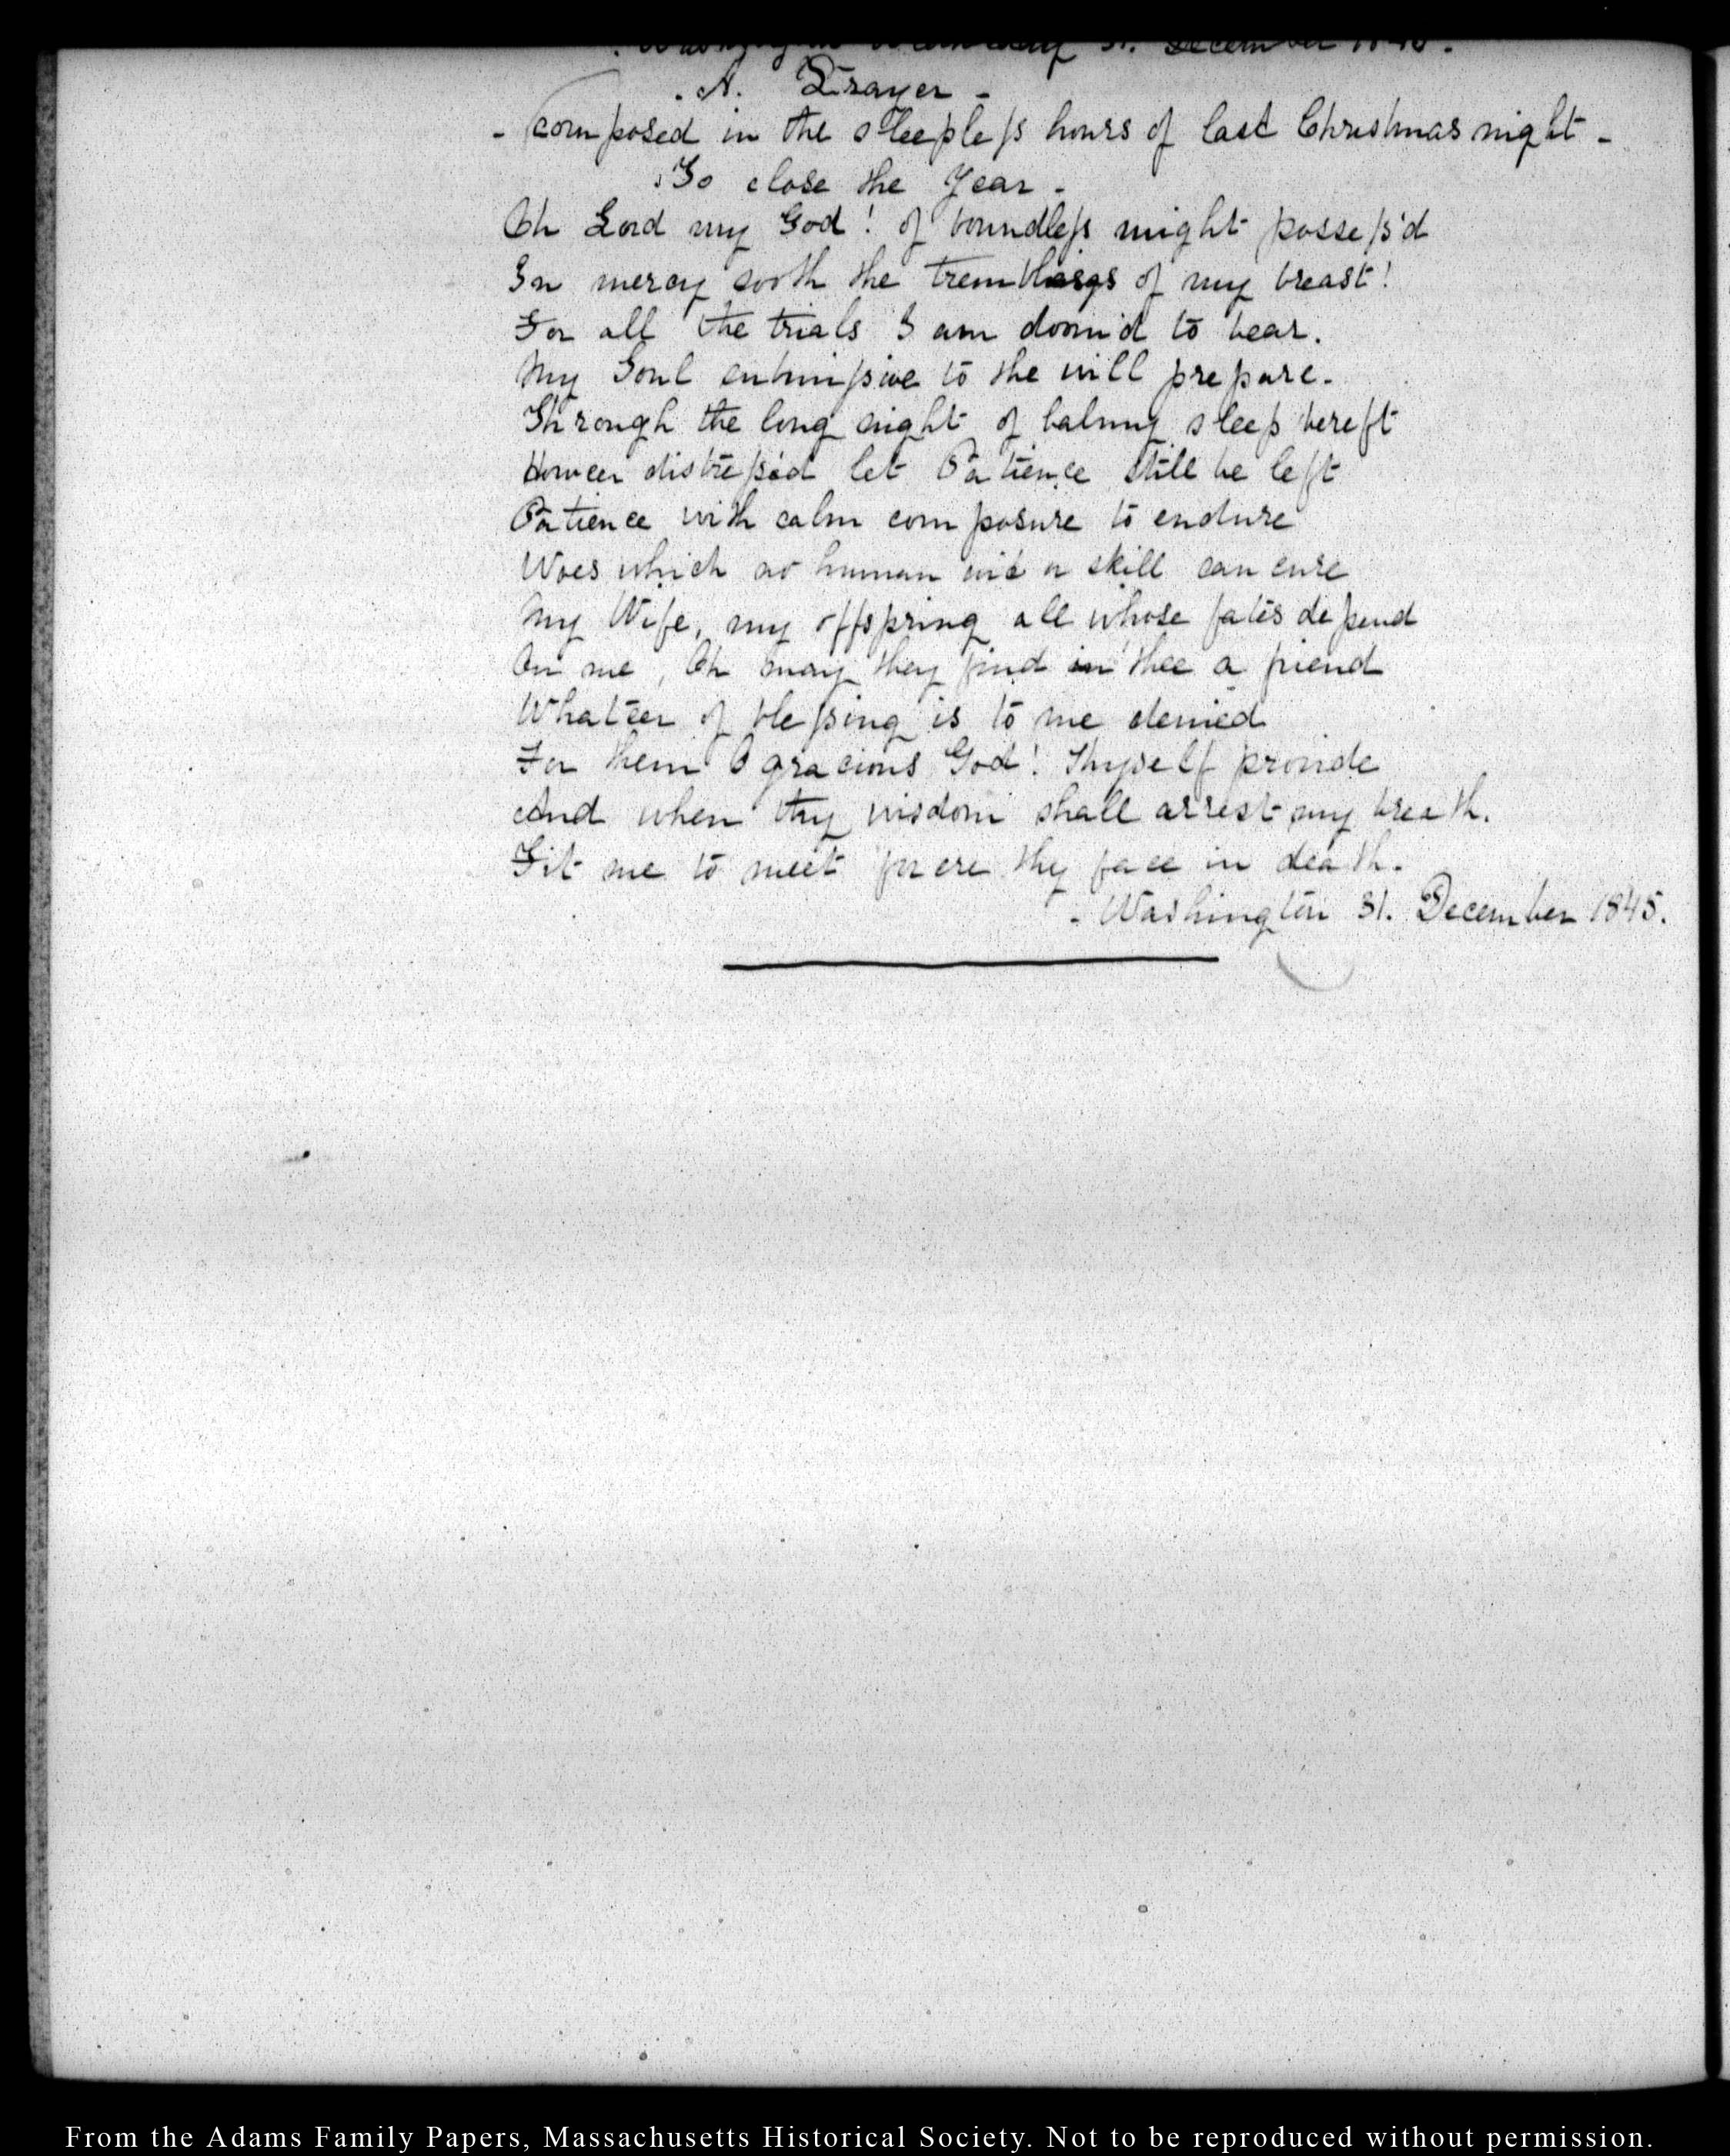 Washington Wednesday 31. December 1845.
A. Prayer -
- composed in the sleepless hours of last Christmas night -
To close the Year -
Oh Lord my God! of boundless might possess'd
In mercy sooth the tremblings of my breast!
For all the trials I am doom'd to bear.
My Soul submissive to the will prepare.
Through the long night of balmy sleep bereft
Howeer distress'd let Patience still be left
Patience with calm composure to endure
Woes which no human aid or skill can cure
My Wife, my offspring all whose fates depend
On me, Oh may they find in thee a friend
Whateer of blessing is to me denied
For them O gracious God! Thyself provide
And when thy wisdom shall arrest my breath.
Fit me to meet thy face in death.
- Washington 31. December 1845.
From the Adams Family Papers, Massachusetts Historical Society. Not to be reproduced without permission.